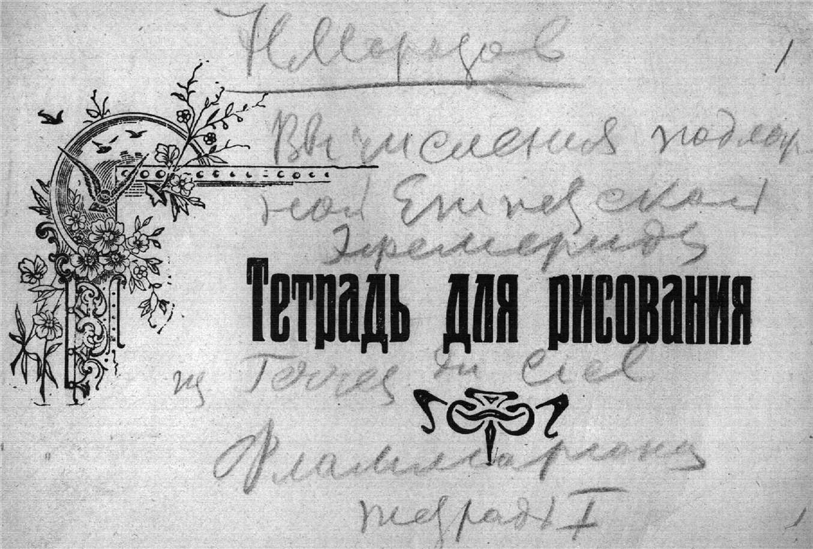 Н Морозов
1
Вычисления подлож-
ной Египетской
Эфемериды
Тетрадь для рисования
из Terres du Ciel
Фламмариона
тетрадь I